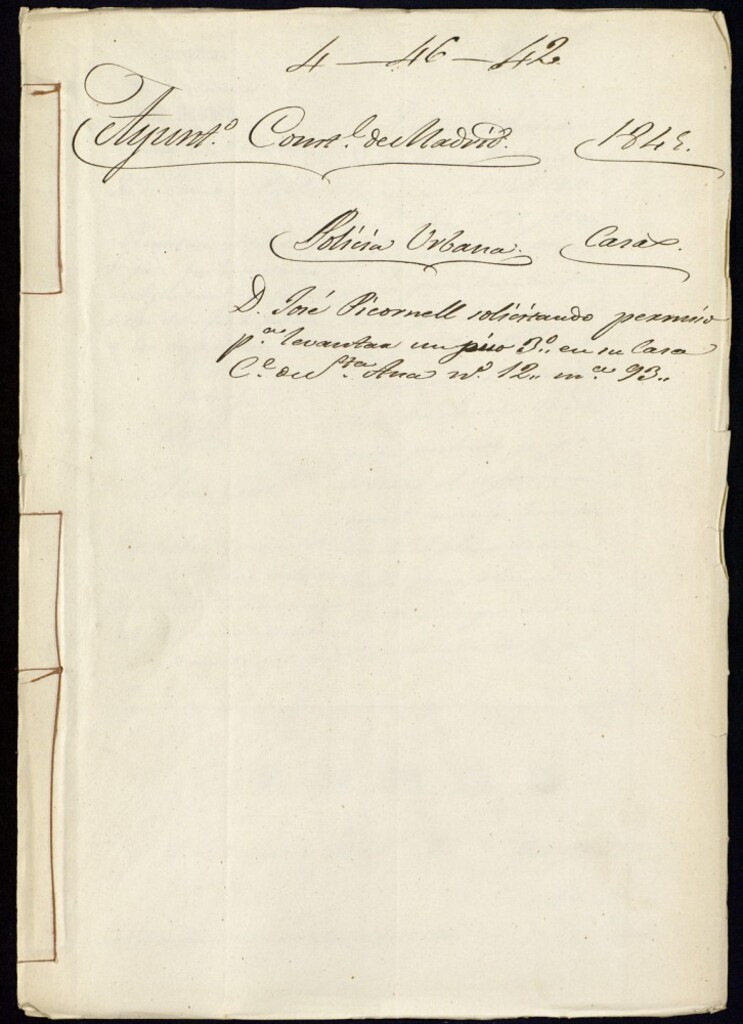 4 — 46 — 42
Ayunt.º Const.l de Madrid. 1845.
Policia Urbana. Casas.
D. José Picornell solicitando permiso
p.a levantar un piso 3.º en su Casa
C.e de S.ta Ana n.º 12,, m.a 93,,